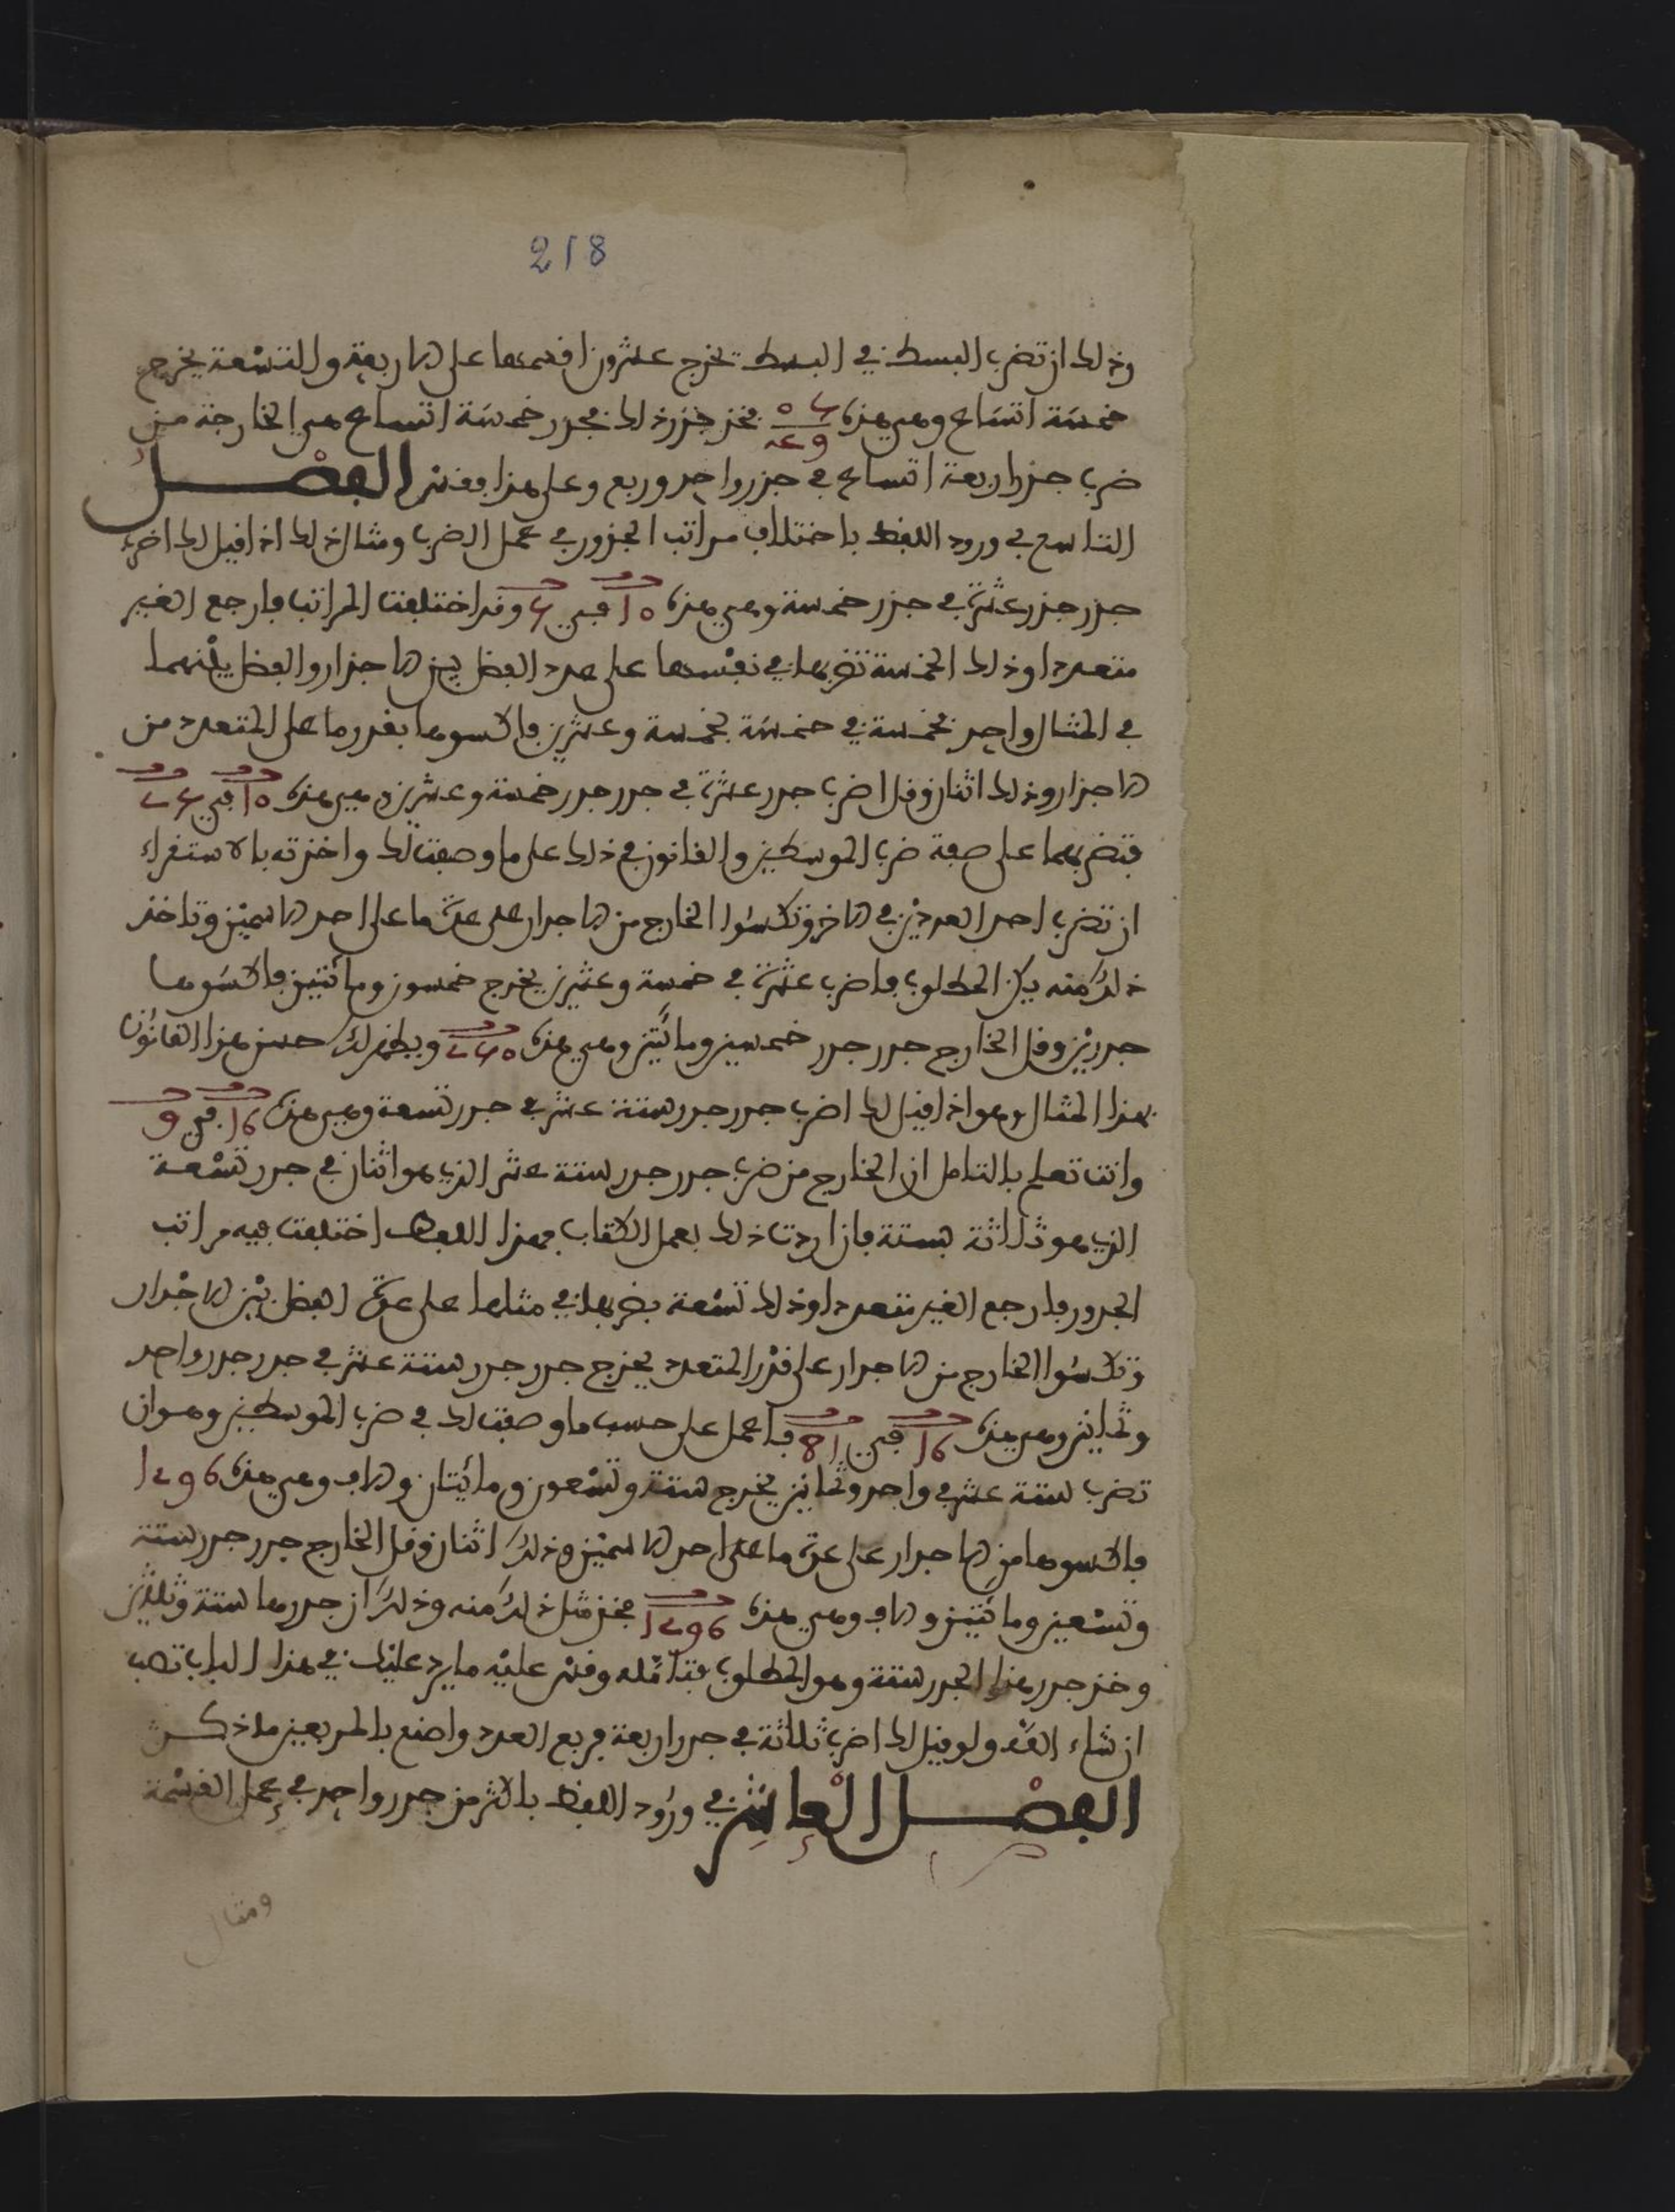 218
وذلك ان تضرب البسط في البسط تخرج عشرون اقسمها على الاربعة والتسعة يخرج
خمسة اتساع وهي هذه فخذ جذر ذلك فجذر خمسة اتساع هي الخارجة من
ضرب جذر اربعة اتساع في جذر واحد وربع وعلى هذا فقس الفصل
التاسع في ورود اللفظ باختلاف مراتب الجذور في عمل الضرب ومثال ذلك اذا قيل لك اضرب
جذر جذر عشرة في جذر خمسة وهي هذه 10 في 5 وقد اختلفت المراتب فارجع الغير
متعددا وذلك الخمسة تضربها في نفسها على عدد الفضل بين الاجذار والفضل بينهما
في المثال واحد فخمسة في خمسة بخمسة وعشرين فاكسوها بقدر ما على المتعدد من
الاجذار وذلك اثنان وقل اضرب جذر جذر عشرة في جذر جذر خمسة وعشرين وهي هذه 10 في 25
فتضربهما على صفة ضرب الموسطين والقانون في ذلك على ما وصفت لك واخذته بالاستقراء
ان تضرب احد العددين في الاخر وتكسوا الخارج من الاجذار على عدة ما على احد الاسمين وتاخذ
ذلك منه يكن المطلوب فاضرب عشرة في خمسة وعشرين يخرج خمسون ومائتين فاكسوها
جذرين وقل الخارج جذر جذر خمسين ومائتين وهي هذه 250 ويظهر لك حسن هذا القانون
بهذا المثال وهو اذا قيل لك اضرب جذر جذر ستة عشر في جذر تسعة وهي هذه 16 في 9
وانت تعلم بالتامل ان الخارج من ضرب جذر جذر ستة عشر الذي هو اثنان في جذر تسعة
الذي هو ثلاثة بستة فان اردت ذلك بعمل الكتاب فهذا اللفظ اختلفت فيه مراتب
الجذور فارجع الغير متعددا وذلك تسعة بضربها في مثلها على عدة الفضل بين الاجذار
وتكسوا الخارج من الاجذار على قدر المتعدد يخرج جذر جذر ستة عشر في جذر جذر واحد
وثمانين وهي هذه 16 في 81 فاعمل على حسب ما وصفت لك في ضرب الموسطين وهو ان
تضرب ستة عشر في واحد وثمانين يخرج ستة وتسعون ومائيتان والف وهي هذه 1296
فاكسوها من الاجذار على عدة ما على احد الاسمين وذلك اثنان وقل الخارج جذر جذر ستة
وتسعين ومائتين والف وهي هذه 1296 فخذ مثل ذلك منه وذلك ان جذرها ستة وثلثين
وخذ جذر هذا الجذر ستة وهو المطلوب فتامله وقس عليه ما يرد عليك في هذا الباب تصب
ان شاء الله ولو قيل لك اضرب ثلاثة في جذر اربعة فربع العدد واصنع بالمربعين ما ذكرت
الفصل العاشر في ورود اللفظ باكثر من جذر واحد في عمل القسمة
ومثال